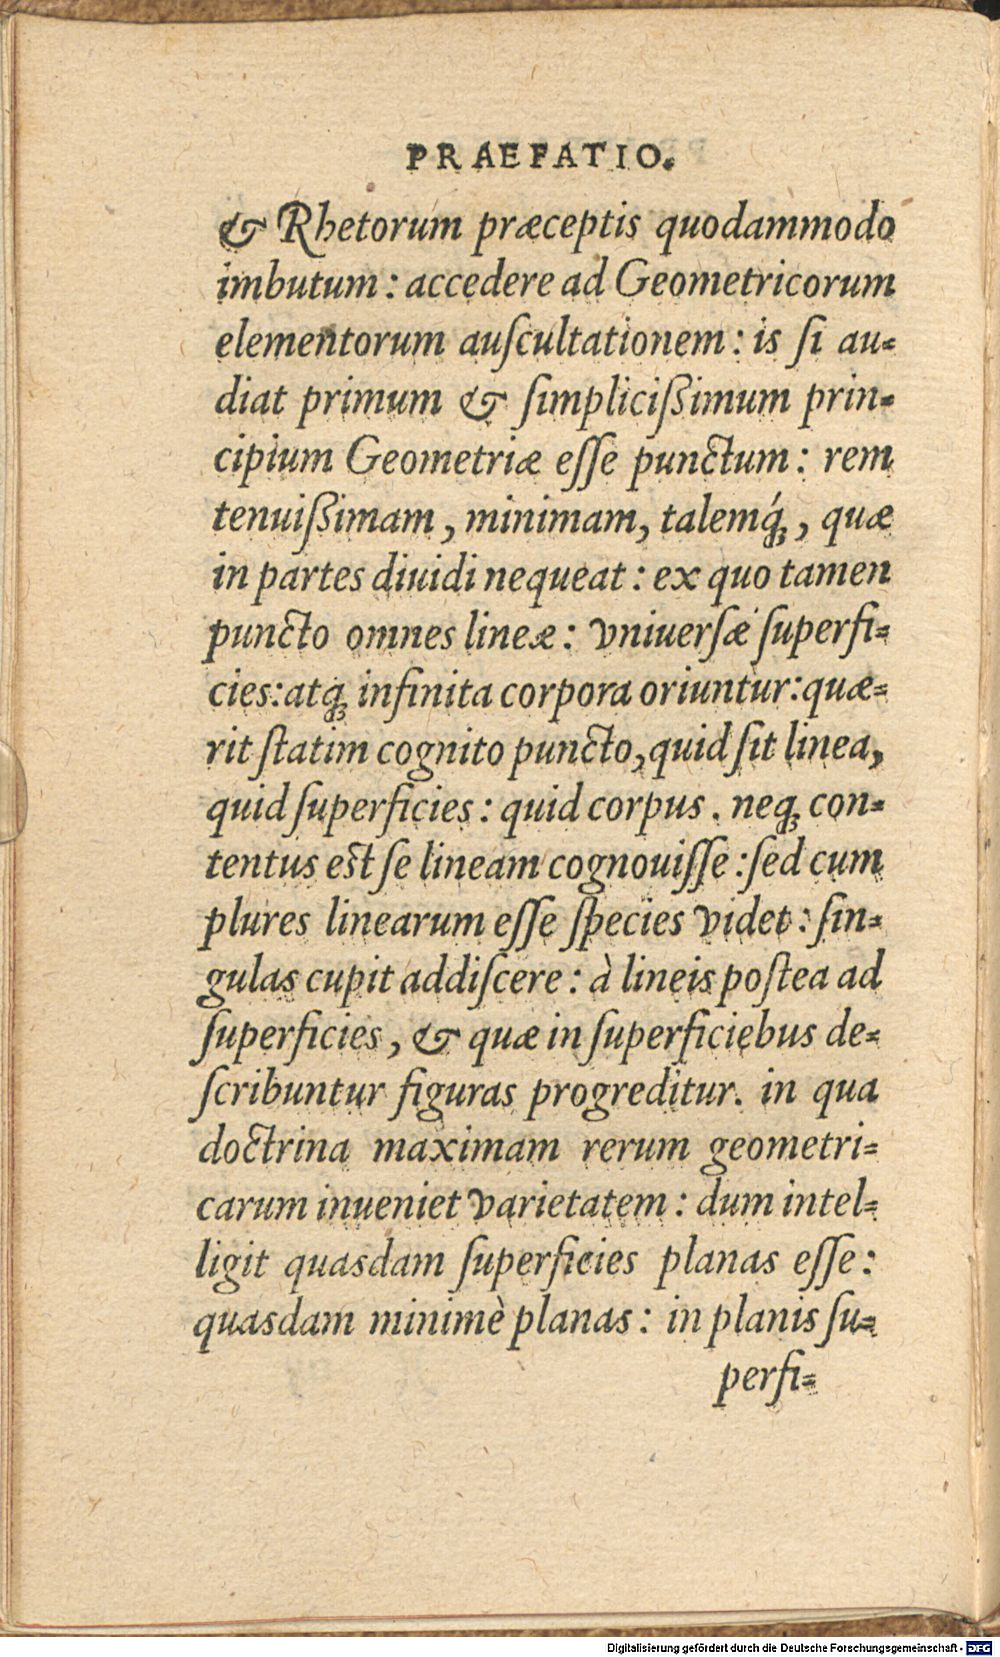 PRAEFATIO.
& Rhetorum præceptis quodammodo
imbutum: accedere ad Geometricorum
elementorum auſcultationem: is ſi au-
diat primum & ſimpliciſsimum prin-
cipium Geometriæ eſſe punctum: rem
tenuiſsimam, minimam, talemq́ꝫ, quæ
in partes diuidi nequeat: ex quo tamen
puncto omnes lineæ: vniuerſæ ſuperfi-
cies: atqꝫ infinita corpora oriuntur: quæ-
rit ſtatim cognito puncto, quid ſit linea,
quid ſuperficies: quid corpus. neqꝫ con-
tentus eſt ſe lineam cognouiſſe: ſed cum
plures linearum eſſe ſpecies videt: ſin-
gulas cupit addiſcere: à lineis poſtea ad
ſuperficies, & quæ in ſuperficiebus de-
ſcribuntur figuras progreditur. in qua
doctrina maximam rerum geometri-
carum inueniet varietatem: dum intel-
ligit quasdam ſuperficies planas eſſe:
quasdam minimè planas: in planis ſu-
perfi-
Digitalisierung gefördert durch die Deutsche Forschungsgemeinschaft - DFG